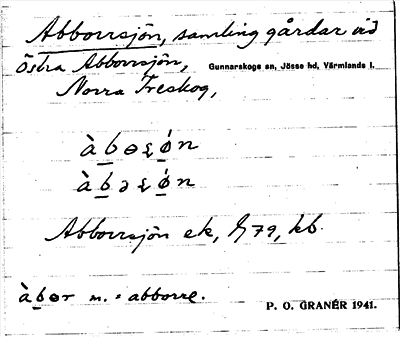 Abborrsjön, samling gårdar vid
Östra Abborrsjön, Gunnarskogs sn, Jösse hd, Värmlands l.
Norra Treskog,
àbɵʂǿn
àbəʂǿn
Abborrsjön ek, 79, kb.
àbɵr m. = abborre.
P. O. GRANÉR 1941.